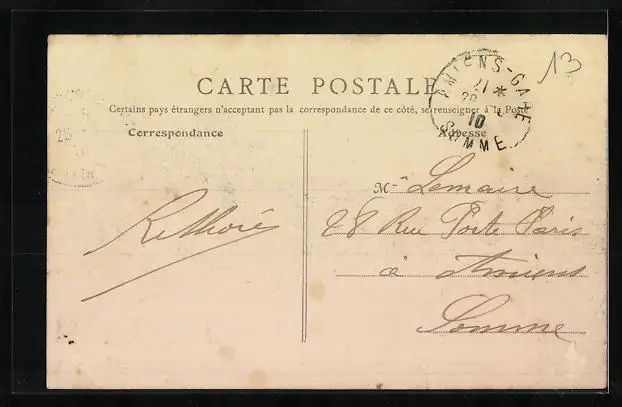 13
AMIENS-GARE
21 *
28
10
SOMME
CARTE POSTALE
Certains pays étrangers n'acceptant pas la correspondance de ce côté, se renseigner à la Poste
Correspondance
Adresse
M Lemaire
28 Rue Porte Paris
à Amiens
Somme